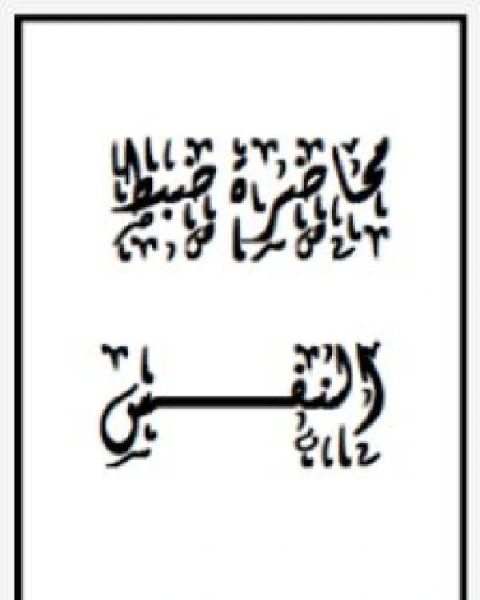 محاضرة ضبط
النفس